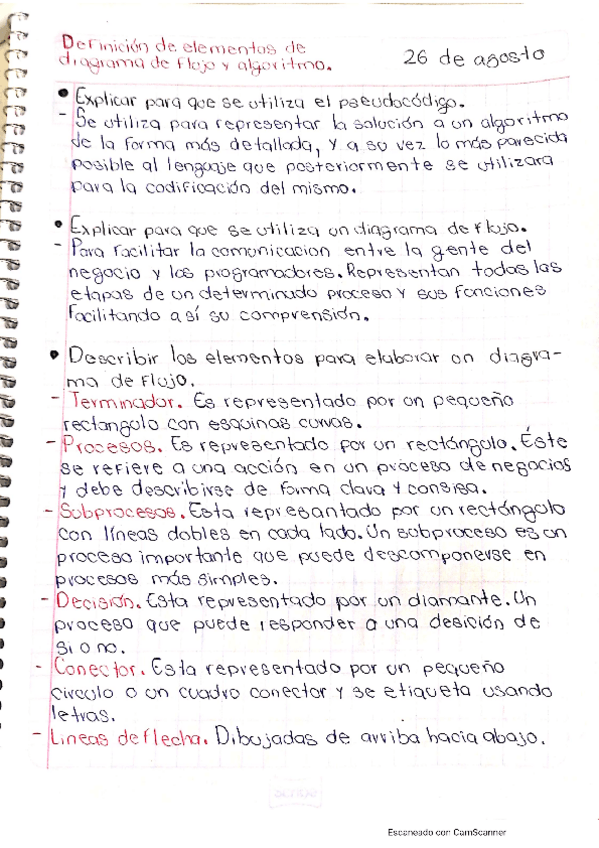 Definición de elementos de
diagrama de flujo y algoritmo.
26 de agosto
• Explicar para que se utiliza el pseudocódigo.
- Se utiliza para representar la solución a un algoritmo
de la forma más detallada, y a su vez lo más parecida
posible al lenguaje que posteriormente se utilizara
para la codificación del mismo.
• Explicar para que se utiliza un diagrama de flujo.
- Para facilitar la comunicacion entre la gente del
negocio y los programadores. Representan todas las
etapas de un determinado proceso y sus funciones
facilitando así su comprensión.
• Describir los elementos para elaborar un diagra-
ma de flujo.
- Terminador. Es representado por un pequeño
rectangulo con esquinas curvas.
- Procesos. Es representado por un rectángulo. Éste
se refiere a una acción en un proceso de negocios
y debe describirse de forma clara y consisa.
- Subprocesos. Esta represantado por un rectángulo
con líneas dobles en cada lado. Un subproceso es un
proceso importante que puede descomponerse en
procesos más simples.
- Decisión. Esta representado por un diamante. Un
proceso que puede responder a una desición de
si o no.
- Conector. Esta representado por un pequeño
circulo o un cuadro conector y se etiqueta usando
letras.
- Lineas de flecha. Dibujadas de arriba hacia abajo.
Escaneado con CamScanner